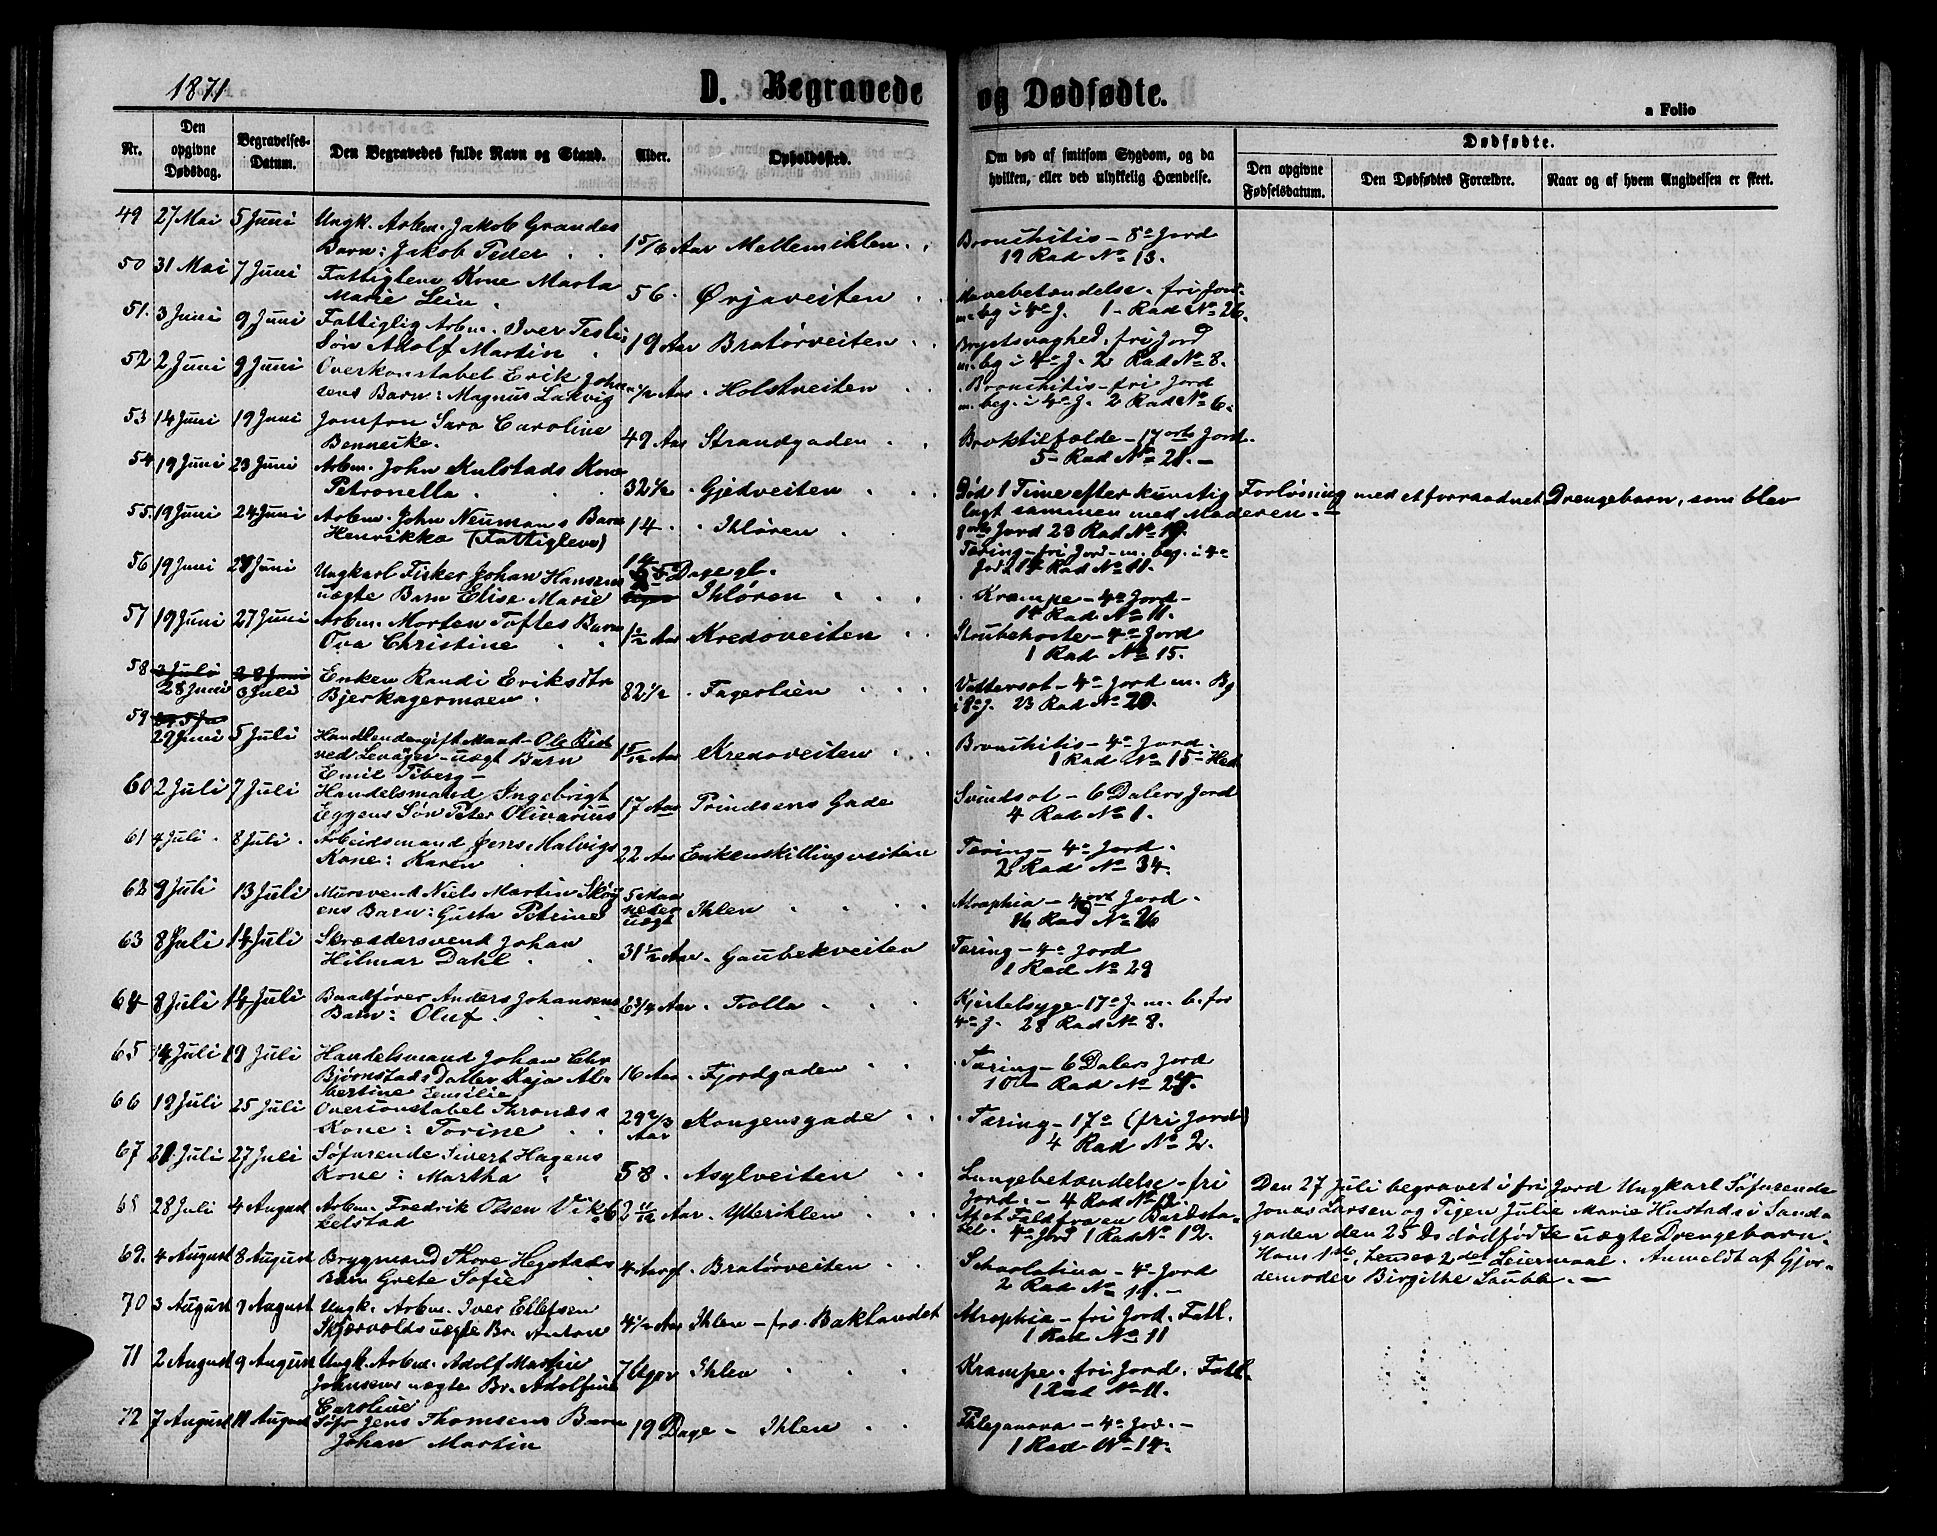 1871
D. Begravede og Dødfødte.
a Folio
Nr.
Den opgivne Dødsdag.
Begravelses-Datum.
Den Begravedes fulde Navn og Stand.
Alder.
Opholdssted.
Om død af smitsom Sygdom, og da hvilken, eller ved ulykkelig Hændelse.
Dødfødte.
Den opgivne Fødselsdatum.
Den Dødfødtes Forældre.
Naar og af hvem Angivelsen er skeet.
49 27 Mai 5 Juni Ungk. Arbm. Jakob Grandes
Barn: Jakob Peder 1 5/6 Aar Mellemihlen.
Bronchitis - 8o Jord
19 Rad No 13.
50 31 Mai 7 Juni Fattiglem Kone Marta
Marie Lein 56. Ørjaveiten
Mavebetændelse. fri Jord
m. bg i 4o J. 1 - Rad No 26.
51. 3 Juni 9 Juni Fattiglig Arbm. Iver Teslis
Søn Adolf Martin 19 Aar Bratørveiten
Brystsvaghed. fri Jord
m. bg i 4o J. 2 Rad No 8.
52 2 Juni 9 Juni Overkonstabel Erik John
sens Barn: Magnus Ludvig 1/2 Aar. Holstveiten
Bronchitis - fri Jord
m. beg. i 4o J. 2 Rad No 6.
53 14 Juni 19 Juni Jomfru Sara Caroline
Benneche. 49 Aar Strandgaden
Broktilfælde - 17 orts Jord.
5 - Rad No 21. -
54 19 Juni 23 Juni Arbm. John Kulstads Kone
Petronella 32 1/2 Gjedveiten
Død 1 Time efter kunstig Forløsning med et forraadnet Drengebarn, som blev
lagt sammen med Moderen. -
8 orts Jord 23 Rad No 19.
55. 19 Juni 24 Juni Arbm. John Neumans Barn
Henrikka (Fattiglem) 14. Ihløren
Tæring - fri Jord - m. beg. i 4o
Jord 14 Rad No 11.
56 19 Juni 28 Juni Ungkarl Fisker Johan Hansens
uægte Barn Elise Marie Dage gl. Ihløren
Krampe - 4o Jord -
14 Rad No 11.
57 19 Juni 27 Juni Arbm. Morten Toftes Barn
Ova Christine 1 1/2 Aar Kredoveiten
Strubehoste - 4o Jord
1 Rad No 15.
58 3 Juli 28 Juni
28 Juni 3 Juli Enken Randi Eriksdtr
Bjerkagermoen 82 1/2. Fagerlien
Vattersot - 4o Jord m. Bg
i 8o J. 23 Rad No 20.
59 29 Juni 5 Juli Handlende gift Mand - Ole
ved Levanger - uægt Barn
Emil Tiberg - 1 5/12 Aar Kredoveiten
Bronchitis - 4o Jord.
1 Rad No 15 - Hed
60 2 Juli 7 Juli Handelsmand Ingebrigt
Eggens Søn Peter Olivarius 17 Aar Prindsens Gade
Svindsot - 6 Dalers Jord
4 Rad No 1.
61 4 Juli. 8 Juli. Arbeidsmand Jens Malvigs
Kone: Karen 22 Aar Enkenskillingsveiten
Tæring - 4o Jord.
2 Rad No 34.
62 9 Juli 13 Juli Mursvend Niels Martin Skog
ens Barn: Gusta Petrine 5 Maa
neder
uægt Ihlen
Atrophia - 4 ort Jord.
16 Rad No 26
63 8 Juli 14 Juli Skræddersvend Johan
Hilmar Dahl 31 1/2 Aar. Gaubekveiten
Tæring - 4o Jord
1 Rad No 29
64 8 Juli 14 Juli Baadfører Anders Johansens
Barn: Oluf 6 3/4 Aar. Trolla
Kjertelsyge - 17o J. m. b. for
4o J. 28 Rad No 8.
65 14 Juli 19 Juli Handelsmand Johan Chr
Bjørnstads Datter Kaja Al-
bertine Emilie 16 Aar. Fjordgaden
Tæring - 6 Dalers Jord
10 Rad No 27.
66 19 Juli 25 Juli Overconstabel Thronæs's
Kone: Torine 29 2/3
Aar Kongensgade
Tæring - 17o (fri Jord)
4 Rad No 2.
67 21 Juli 27 Juli Søfarende Sivert Hagens
Kone: Martha 58. Asylveiten
Lungebetændelse - fri
Jord. - 4 Rad No 12.
Den 27 Juli begravet i fri Jord Ungkarl Søfarende
Jonas Larsen og Pigen Julie Marie Hustads i Sand-
gaden den 25 Ds dødfødte uægte Drengebarn.
Hans 1ste, hendes 2det Leiermaal. Anmeldt af Gjor-
demoder Birgithe Saubb. -
68 28 Juli 4 August Arbm. Fredrik Olsen Vik
kelstad 62 11/12 Aar. Ytterihlen
Af et Fald fra en Bordsta-
bel. 4o Jord 1 Rad No 12.
69. 4 August 8 August Brygmand Thore Hegstads
Barn Grete Sofie 4 Aar gl. Bratørveiten
Scharlatina - 4o Jord
2 Rad No 11. -
70 3 August 9 August Ungk. Arbm. Iver Ellefsen
Skjervolds uægte Br. Anton 4 1/2 Aar Ihlen - fra Baklandet
Atrophia - fri Jord. Fatt.
1 Rad No 11
71 2 August 9 August Ungk. Arbm. Adolf Martin
Johnsens uægte Br. Adolfine
Caroline 7 Uger Ihlen
Krampe. fri Jord. Fatt.
1 Rad No 11.
72 7 August 11 August Søfr Jens Thomsens Barn
Johan Martin 19 Dage - Ihlen
- 4o Jord. -
1 Rad No 14.